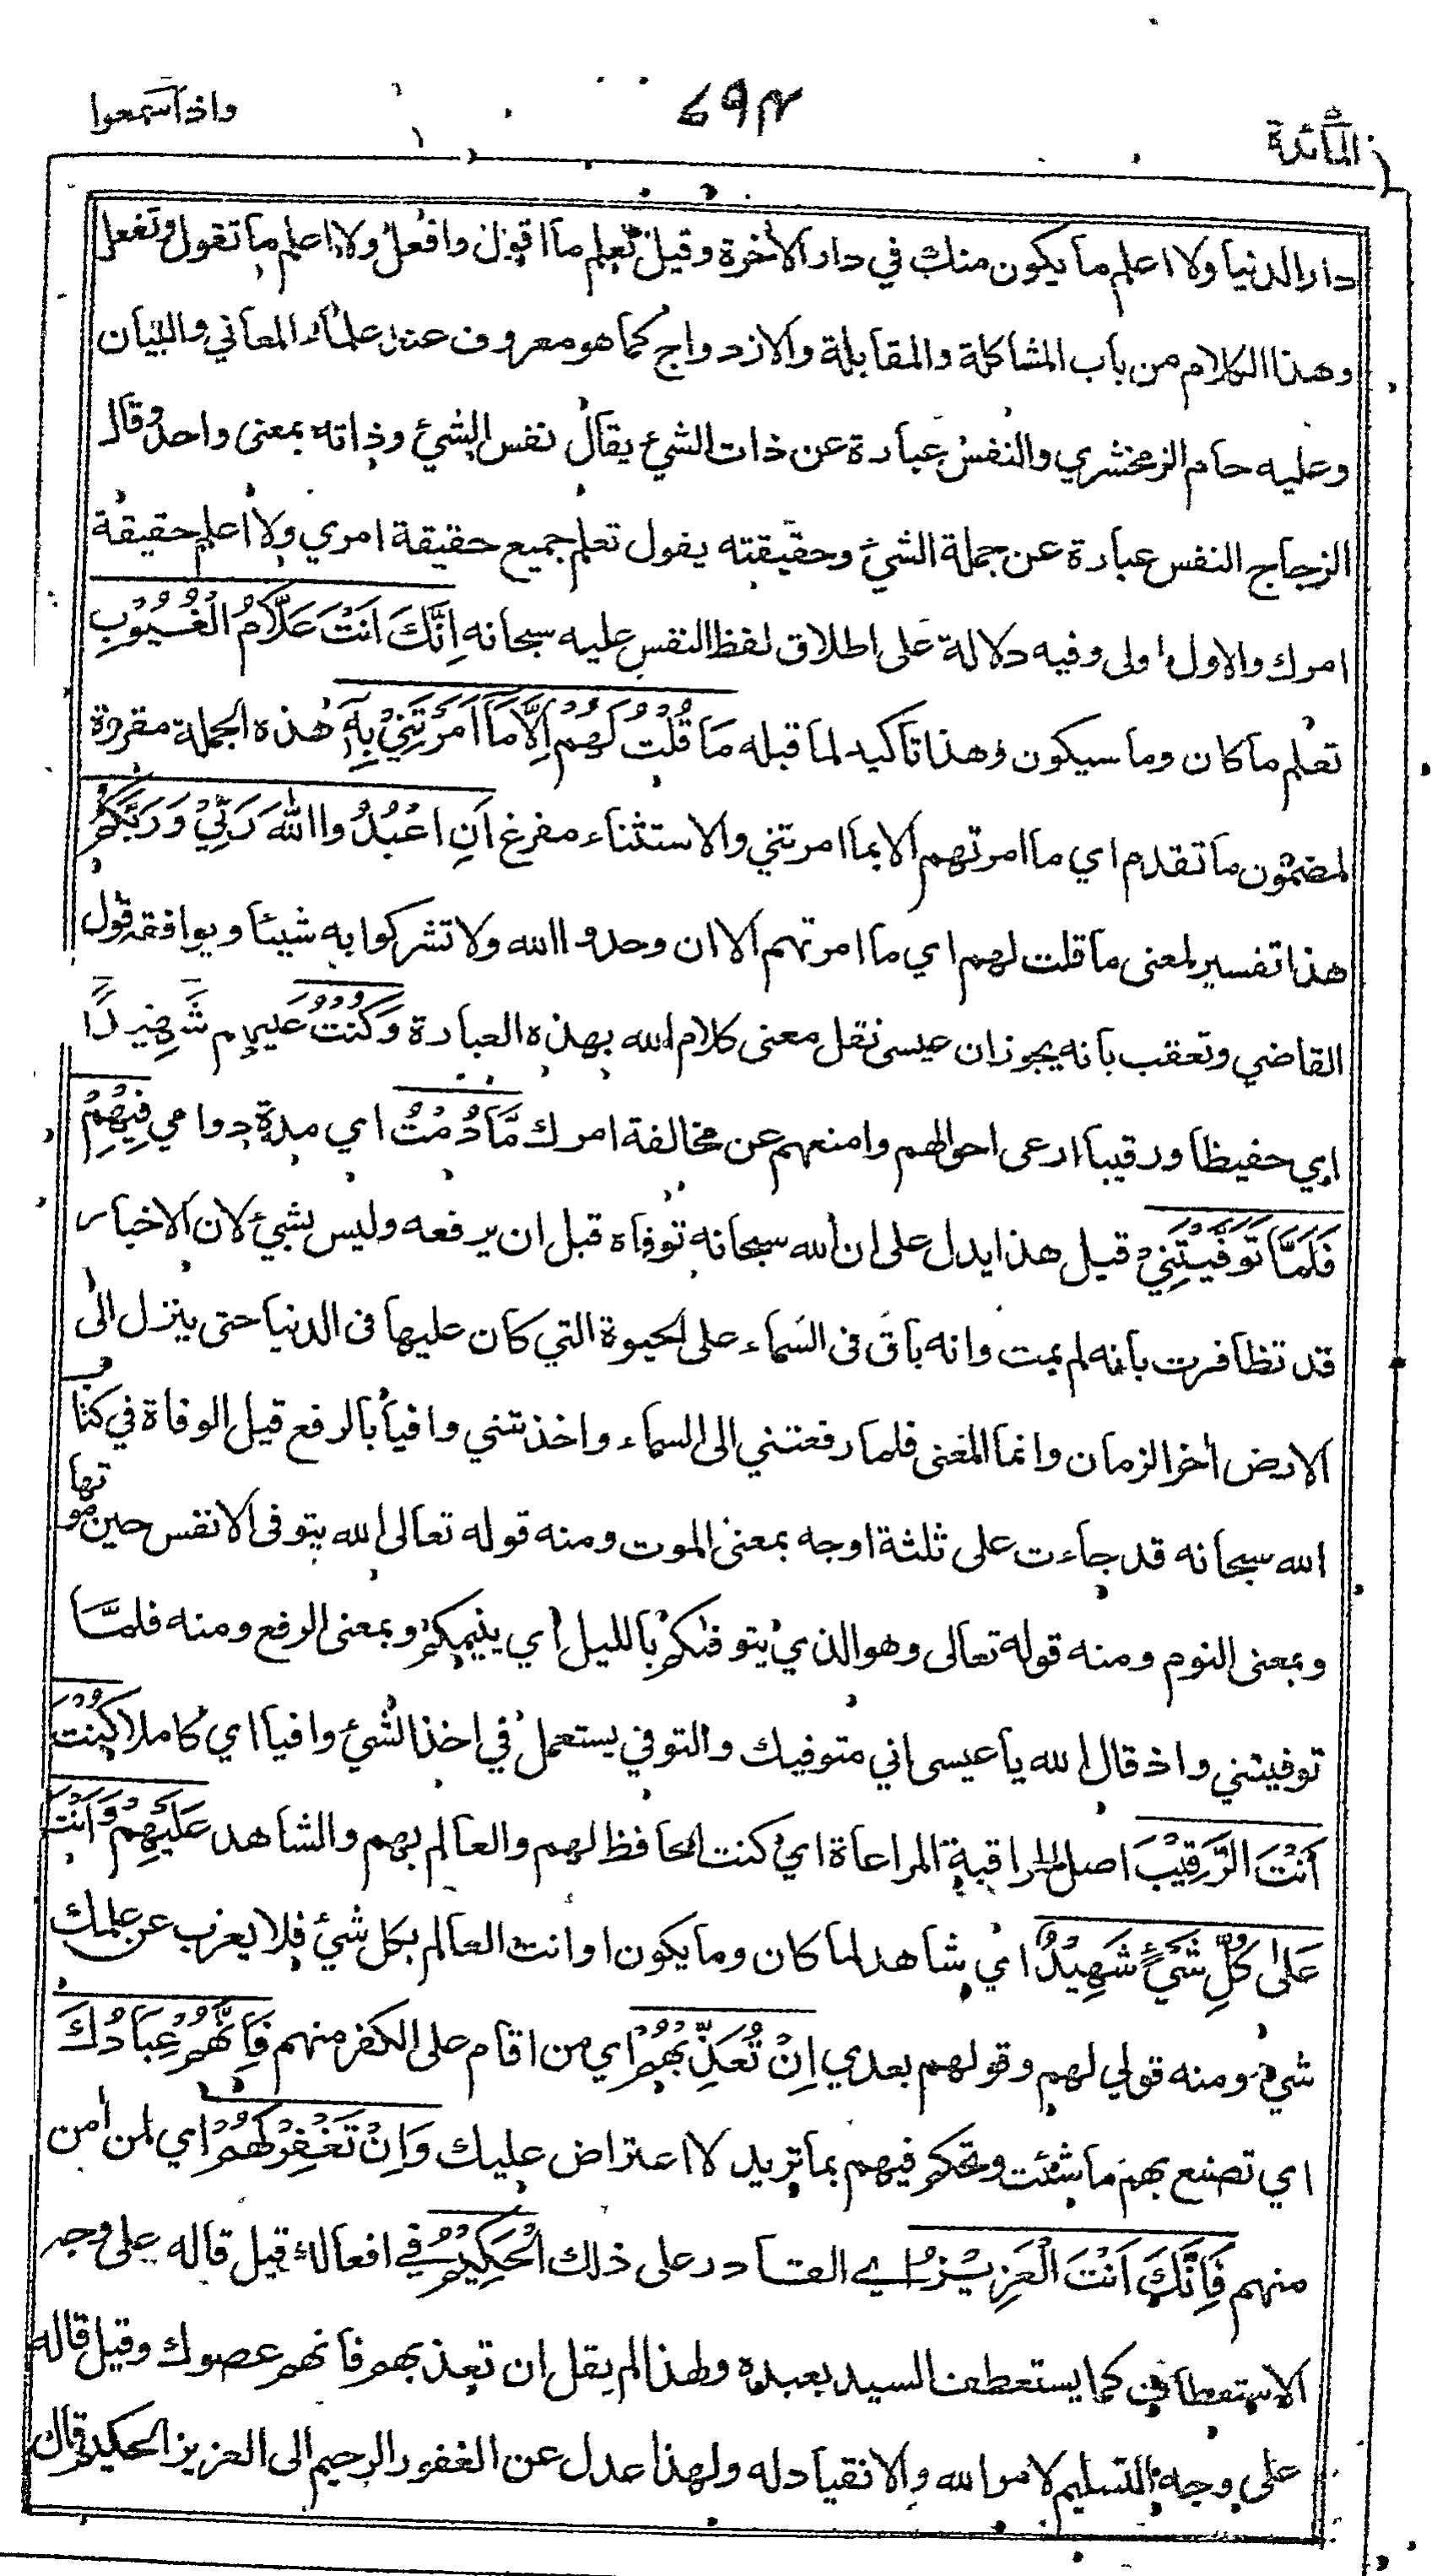 المائدة ٦٩٣ واذا سمعوا
دار الدنيا ولا اعلم ما يكون منك في دار الأخرة وقيل تعلم ما اقول وافعل ولا اعلم ما تقول وتفعل
وهذا الكلام من باب المشاكلة والمقابلة والازدواج كما هو معروف عند علماء المعاني والبيان
وعليه حام الزمخشري والنفس عبارة عن ذات الشيء يقال نفس الشيء وذاته بمعنى واحد وقال
الزجاج النفس عبارة عن جملة الشيء وحقيقته يقول تعلم جميع حقيقة امري ولا اعلم حقيقة
امرك والاول اولى وفيه دلالة على اطلاق لفظ النفس عليه سبحانه اِنَّكَ اَنْتَ عَلَّامُ الْغُيُوْبِ
تعلم ما كان وما سيكون وهذا تأكيد لما قبله مَا قُلْتُ لَهُمْ اِلَّا مَا اَمَرْتَنِيْ بِهٖٓ هذه الجملة مقررة
لمضمون ما تقدم اي ما امرتهم الا بما امرتني والاستثناء مفرغ اَنِ اعْبُدُوا اللّٰهَ رَبِّيْ وَرَبَّكُمْ
هذا تفسير لمعنى ما قلت لهم اي ما امرتهم الا ان وحدوا الله ولا تشركوا به شيئا ويوافقه قول
القاضي وتعقب بانه يجوز ان عيسى نقل معنى كلام الله بهذه العبارة وَكُنْتُ عَلَيْهِمْ شَهِيْدًا
اي حفيظا ورقيبا ارعى احوالهم وامنعهم عن مخالفة امرك مَّا دُمْتُ اي مدة دوامي فِيْهِمْ
فَلَمَّا تَوَفَّيْتَنِيْ قيل هذا يدل على ان الله سبحانه توفاه قبل ان يرفعه وليس بشيء لان الاخبار
قد تظافرت بانه لم يمت وانه باق فى السماء على الحيوة التي كان عليها فى الدنيا حتى ينزل الى
الارض أخر الزمان وانما المعنى فلما رفعتني الى السماء واخذتني وافيا بالرفع قيل الوفاة في كتاب
الله سبحانه قد جاءت على ثلثة اوجه بمعنى الموت ومنه قوله تعالى الله يتوفى الانفس حين موتها
وبمعنى النوم ومنه قوله تعالى وهو الذي يتوفٰكم بالليل أي ينيمكم وبمعنى الرفع ومنه فلمَّا
توفيتني واذ قال الله يا عيسى اني متوفيك والتوفي يستعمل في اخذ الشيء وافيا اي كاملا كُنْتَ
اَنْتَ الرَّقِيْبَ اصل المراقبة المراعاة اي كنت الحافظ لهم والعالم بهم والشاهد عَلَيْهِمْ وَاَنْتَ
عَلٰى كُلِّ شَيْءٍ شَهِيْدٌ اي شاهد لما كان وما يكون او انت العالم بكل شيء فلا يعزب عن علمك
شيء ومنه قولي لهم وقولهم بعدي اِنْ تُعَذِّبْهُمْ اي من اقام على الكفر منهم فَاِنَّهُمْ عِبَادُكَ
اي تصنع بهم ما شئت وتحكم فيهم بما تريد لا اعتراض عليك وَاِنْ تَغْفِرْ لَهُمْ اي لمن أمن
منهم فَاِنَّكَ اَنْتَ الْعَزِيْزُ اي القادر على ذلك الْحَكِيْمُ في افعاله قيل قاله على وجه
الاستعطاف كما يستعطف السيد بعبده ولهذا لم يقل ان تعذبهم فانهم عصوك وقيل قاله
على وجه التسليم لامر الله والانقياد له ولهذا عدل عن الغفور الرحيم الى العزيز الحكيم قال